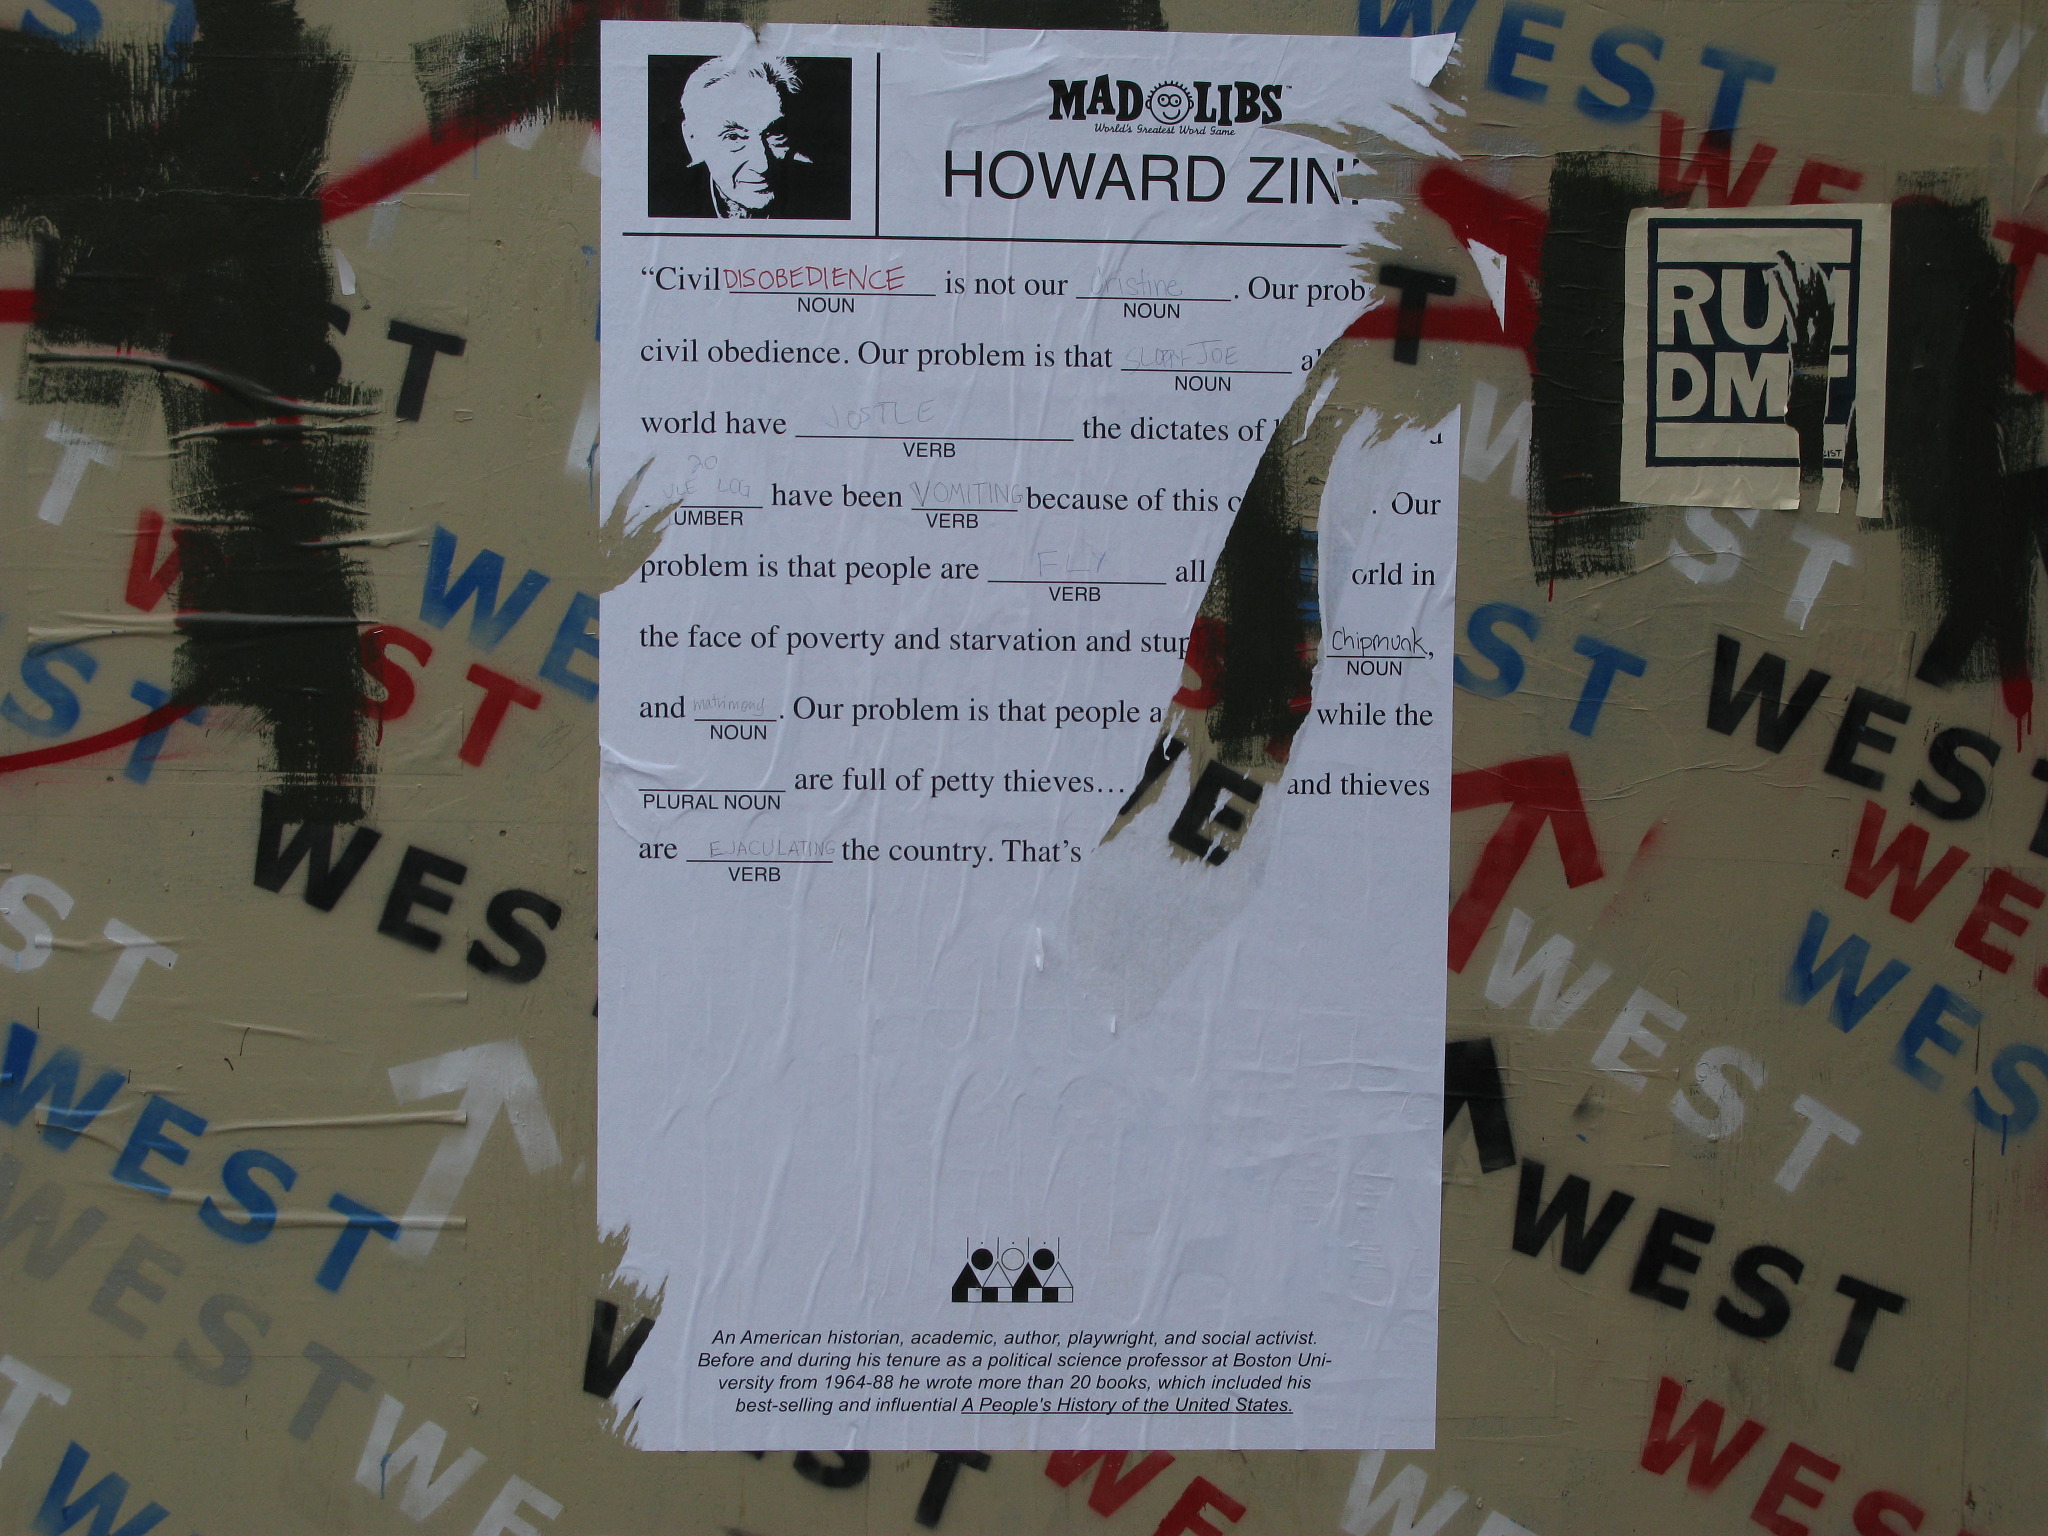 MAD LIBS™
World's Greatest Word Game
HOWARD ZIN
"Civil DISOBEDIENCE is not our . Our prob
NOUN NOUN
civil obedience. Our problem is that SLOPPY JOE
NOUN
world have JOSTLE the dictates of
VERB
LOG have been VOMITING because of this . Our
UMBER VERB
problem is that people are FLY all orld in
VERB
the face of poverty and starvation and stup Chipmunk,
NOUN
and matrimony. Our problem is that people a while the
NOUN
are full of petty thieves… and thieves
PLURAL NOUN
are EJACULATING the country. That's
VERB
An American historian, academic, author, playwright, and social activist.
Before and during his tenure as a political science professor at Boston Uni-
versity from 1964-88 he wrote more than 20 books, which included his
best-selling and influential A People's History of the United States.
RUM
DMT
WEST
WEST
WEST
WEST
WEST
WEST
WEST
WEST
WEST